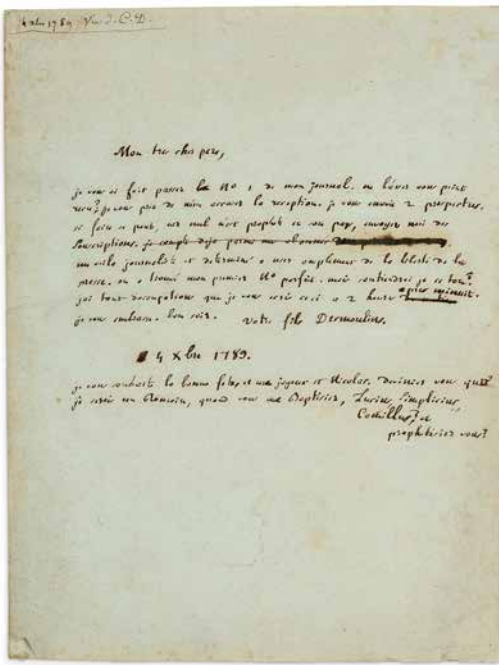 4 Xbre 1789 V... J. C. D.
Mon tres cher pere,
je vous ai fait passer le No 1 de mon journal. ne l'avez vous point
recu? je vous prie de m'en accuser la reception. je vous envoie 2 prospectus.
si faire se peut, car nul n'est prophete en son pays, envoyez moi des
souscriptions. je compte deja parmi mes abonnes
journaliste et determiné a user amplement de la liberté de la
presse. on a trouvé mon premier No parfait. mais soutiendrai je ce ton?
j'ai tant d'occupations que je vous ecris ceci a 2 heures apres minuit.
je vous embrasse. bon soir. votre fils Desmoulins.
4 Xbre 1789.
je vous souhaite la bonne fete, et a ma et Nicolas. deviniez vous que
je serois un Romain, quand vous me Baptisiez, Lucius, Simplicius,
Camillus, et
prophetisiez vous?